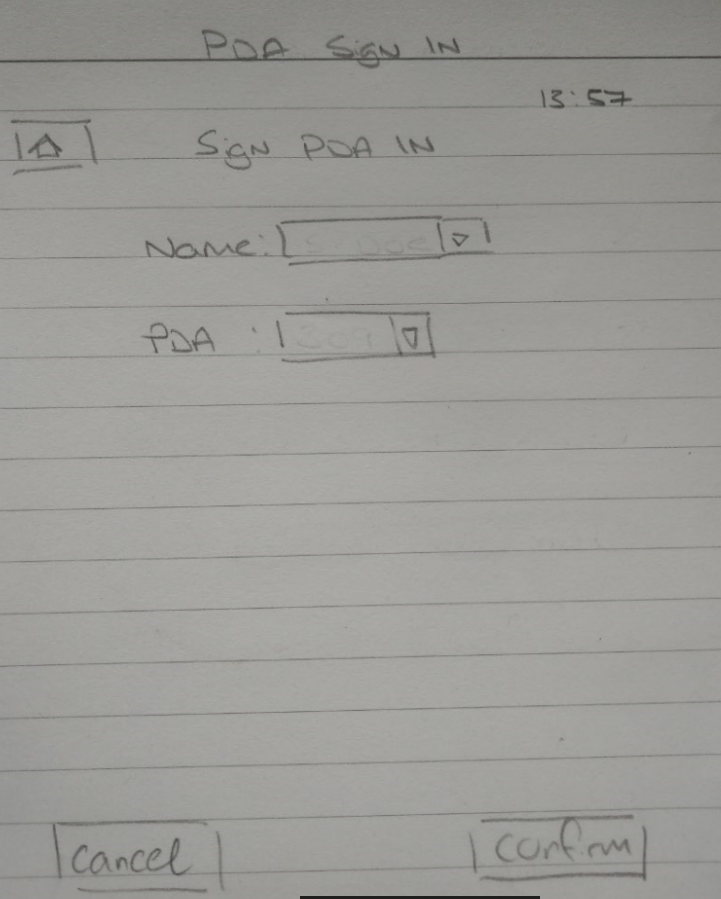 PDA Sign IN
13:57
Sign PDA IN
Name:
PDA :
Cancel
Confirm